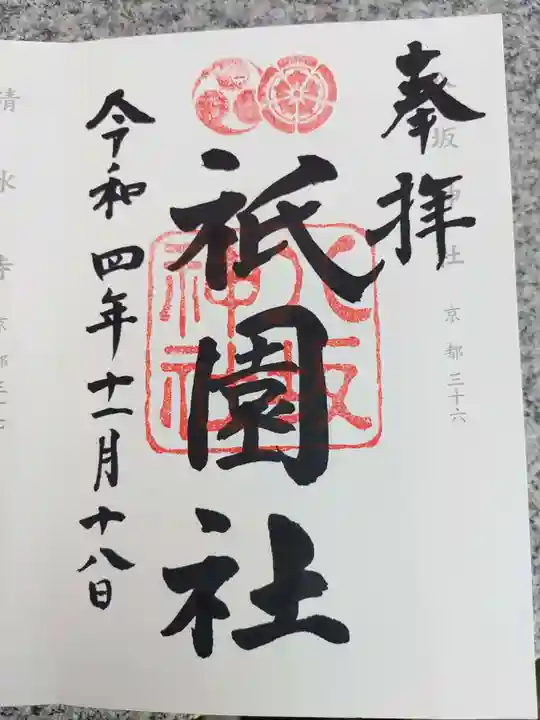 奉拝
八坂神社
京都三十六
祇園社
八坂神社
令和四年十一月十八日
清水寺